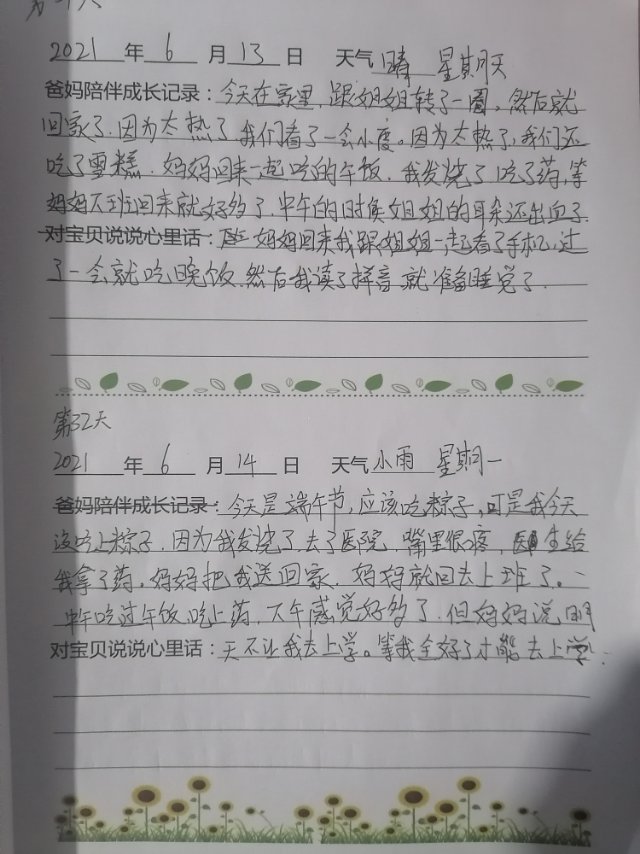 2021 年 6 月 13 日 天气 晴 星期天
爸妈陪伴成长记录：今天在家里，跟姐姐转了一圈，然后就
回家了，因为太热了，我们看了一会小度。因为太热了，我们还
吃了雪糕，妈妈回来一起吃的午饭，我发烧了吃了药，等
妈妈下班回来就好多了，中午的时候姐姐的耳朵还出血了
对宝贝说说心里话：妈妈回来我跟姐姐一起看了手机，过
了一会就吃晚饭，然后我读了拼音就准备睡觉了.
第32天
2021 年 6 月 14 日 天气 小雨 星期一
爸妈陪伴成长记录：今天是端午节，应该吃粽子，可是我今天
没吃上粽子，因为我发烧了，去了医院，嘴里很疼，医生给
我拿了药。妈妈把我送回家，妈妈就回去上班了。
中午吃过午饭，吃上药，下午感觉好多了，但妈妈说明
对宝贝说说心里话：天不让我去上学。等我全好了才能去上学.